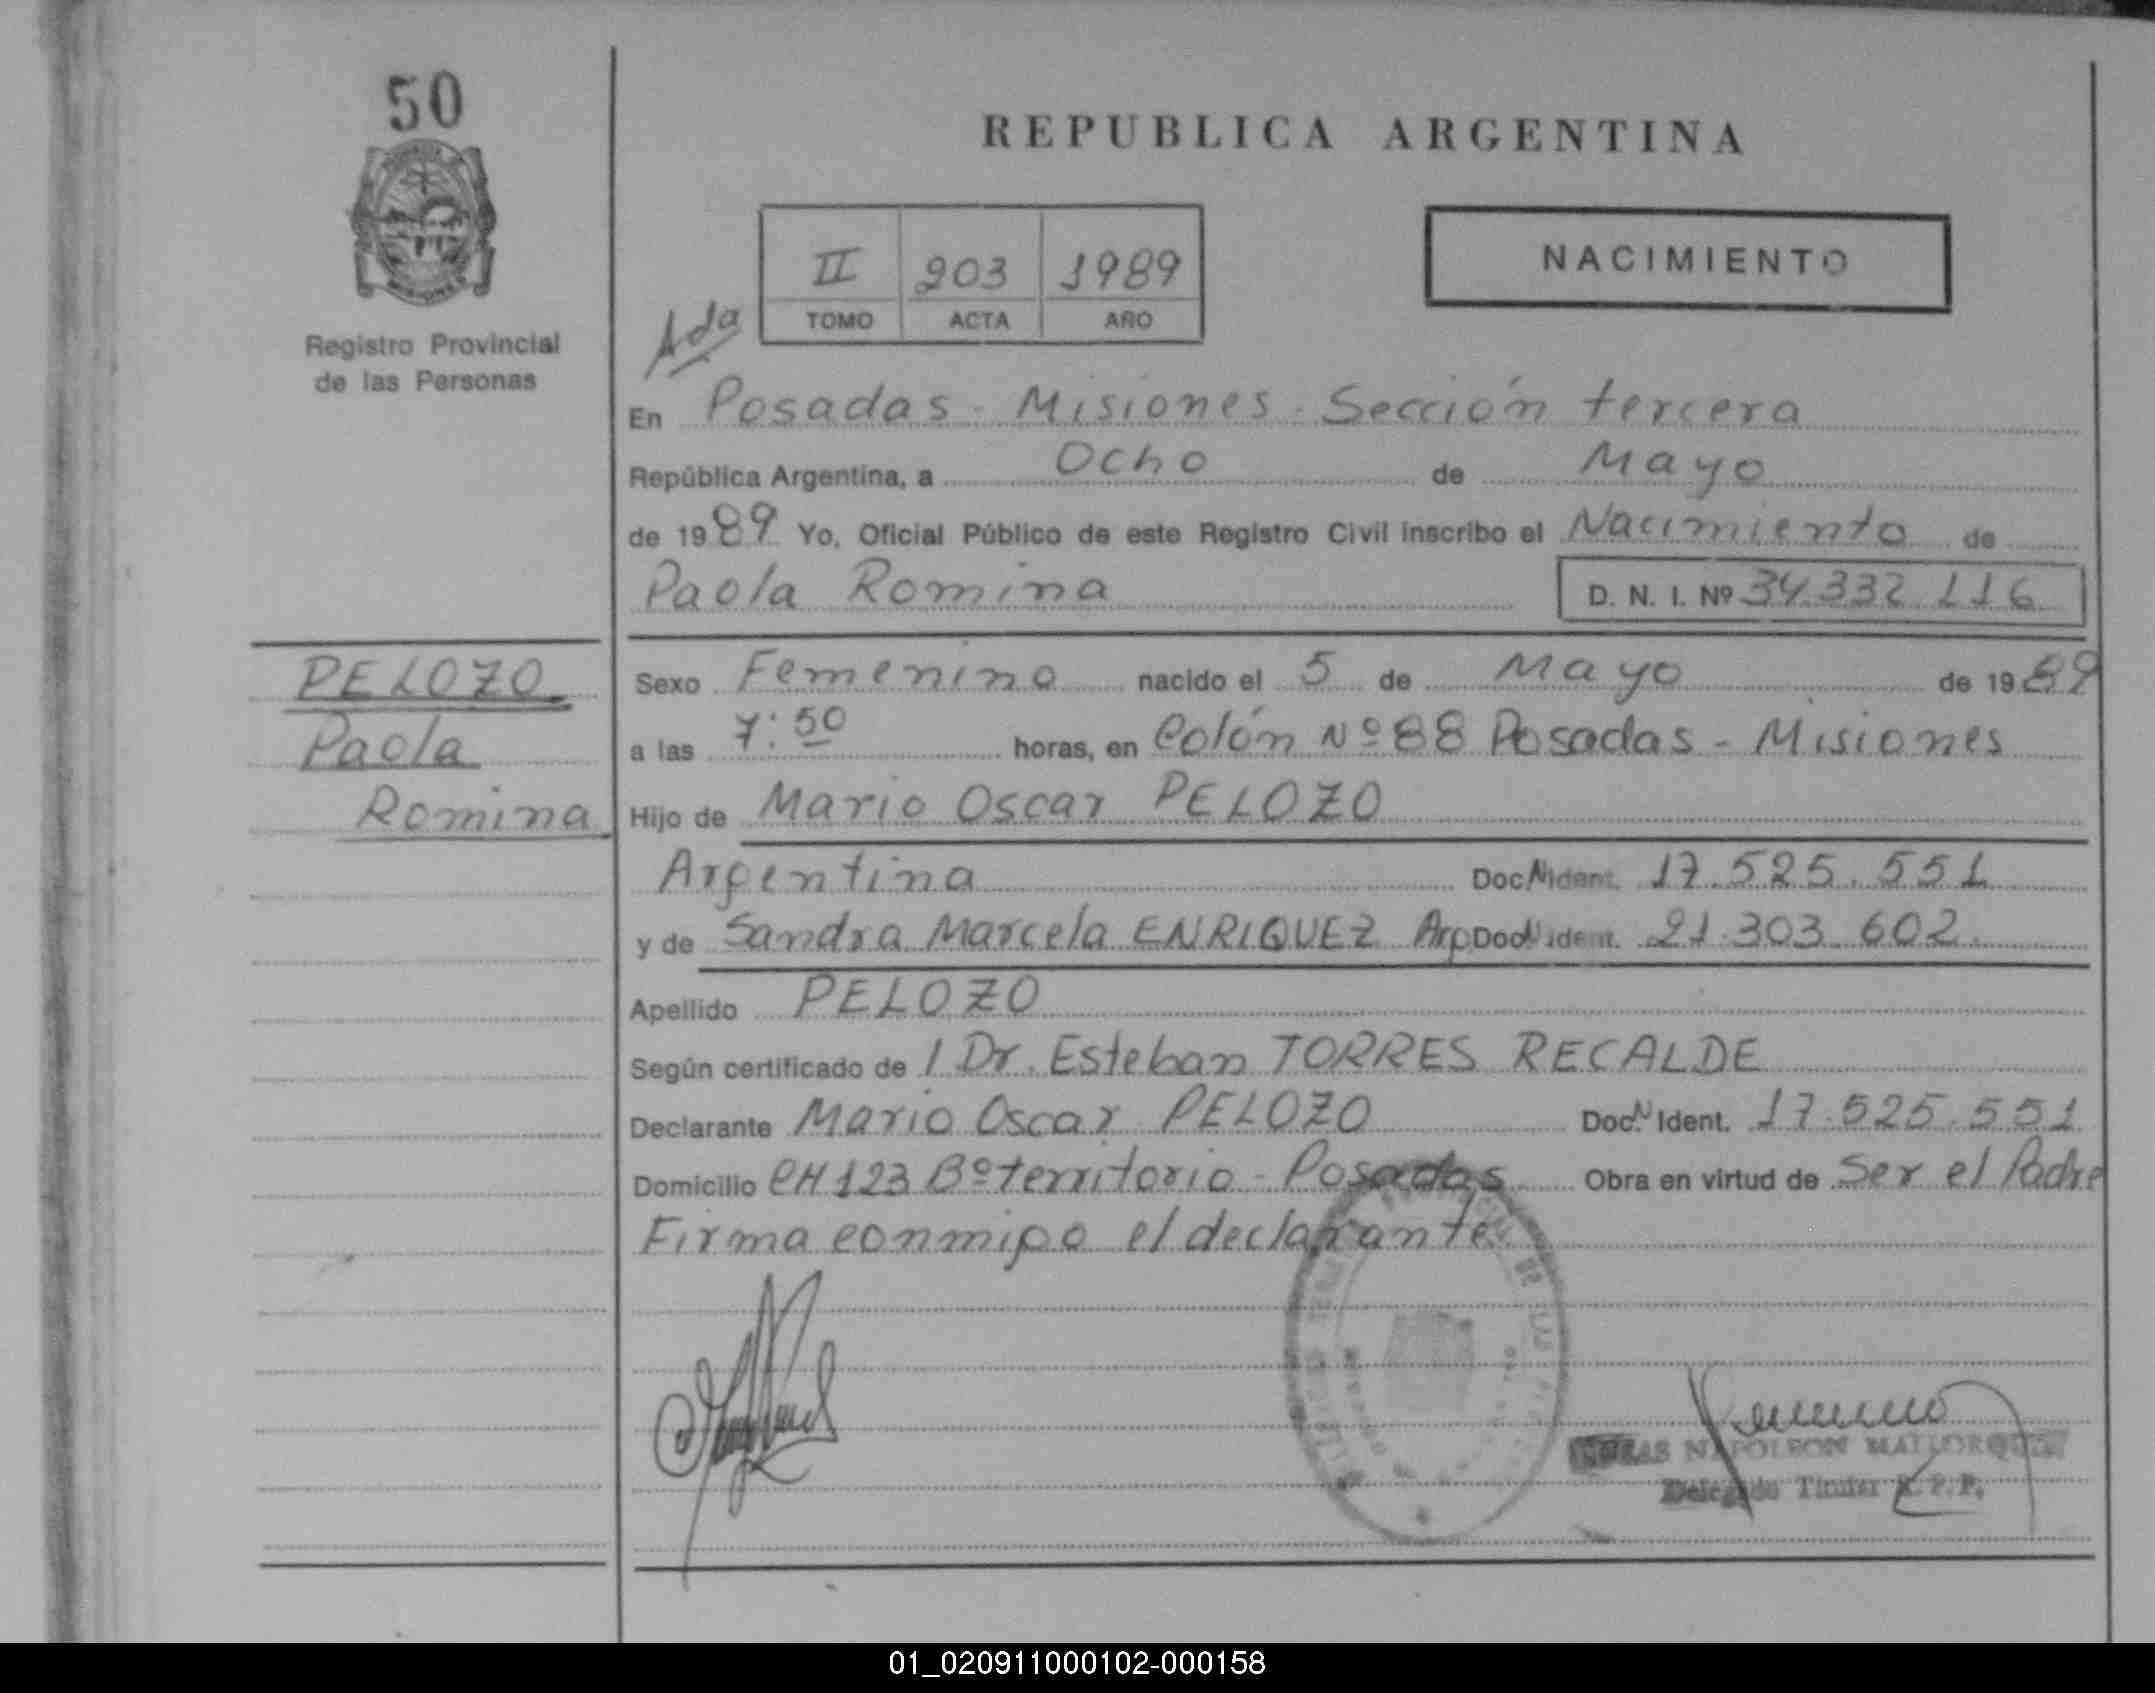 50
REPUBLICA ARGENTINA
II 203 1989
TOMO ACTA AÑO
NACIMIENTO
Registro Provincial
de las Personas
En Posadas - Misiones - Sección tercera
República Argentina, a Ocho de Mayo
de 1989 Yo, Oficial Público de este Registro Civil inscribo el Nacimiento de
Paola Romina D. N. I. Nº 34.332.116
PELOZO
Paola
Romina
Sexo Femenino nacido el 5 de Mayo de 1989
a las 7:50 horas, en Colón Nº 88 Posadas - Misiones
Hijo de Mario Oscar PELOZO
Argentina Doc. N ident. 17.525.551
y de Sandra Marcela ENRIQUEZ Arg Doc. N ident. 21.303.602
Apellido PELOZO
Según certificado de l Dr. Esteban TORRES RECALDE
Declarante Mario Oscar PELOZO Doc. N Ident. 17.525.551
Domicilio CH 123 Bº territorio - Posadas Obra en virtud de Ser el Padre
Firma conmigo el declarante
NAPOLEON
Delegado Titular R.P.P.
01_020911000102-000158